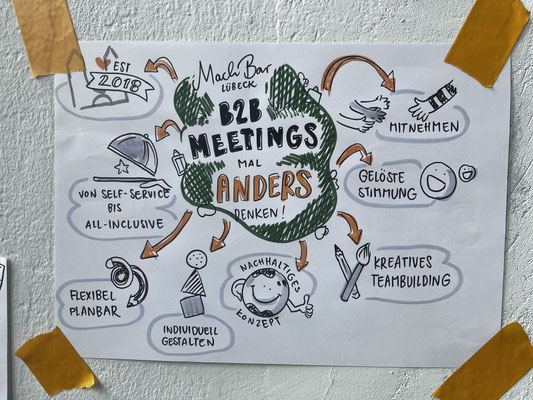 EST
2018
Mach Bar
LÜBECK
B2B
MEETINGS
MAL
ANDERS
DENKEN!
MITNEHMEN
GELÖSTE
STIMMUNG
KREATIVES
TEAMBUILDING
NACHHALTIGES
KONZEPT
INDIVIDUELL
GESTALTEN
FLEXIBEL
PLANBAR
VON SELF-SERVICE
BIS
ALL-INCLUSIVE